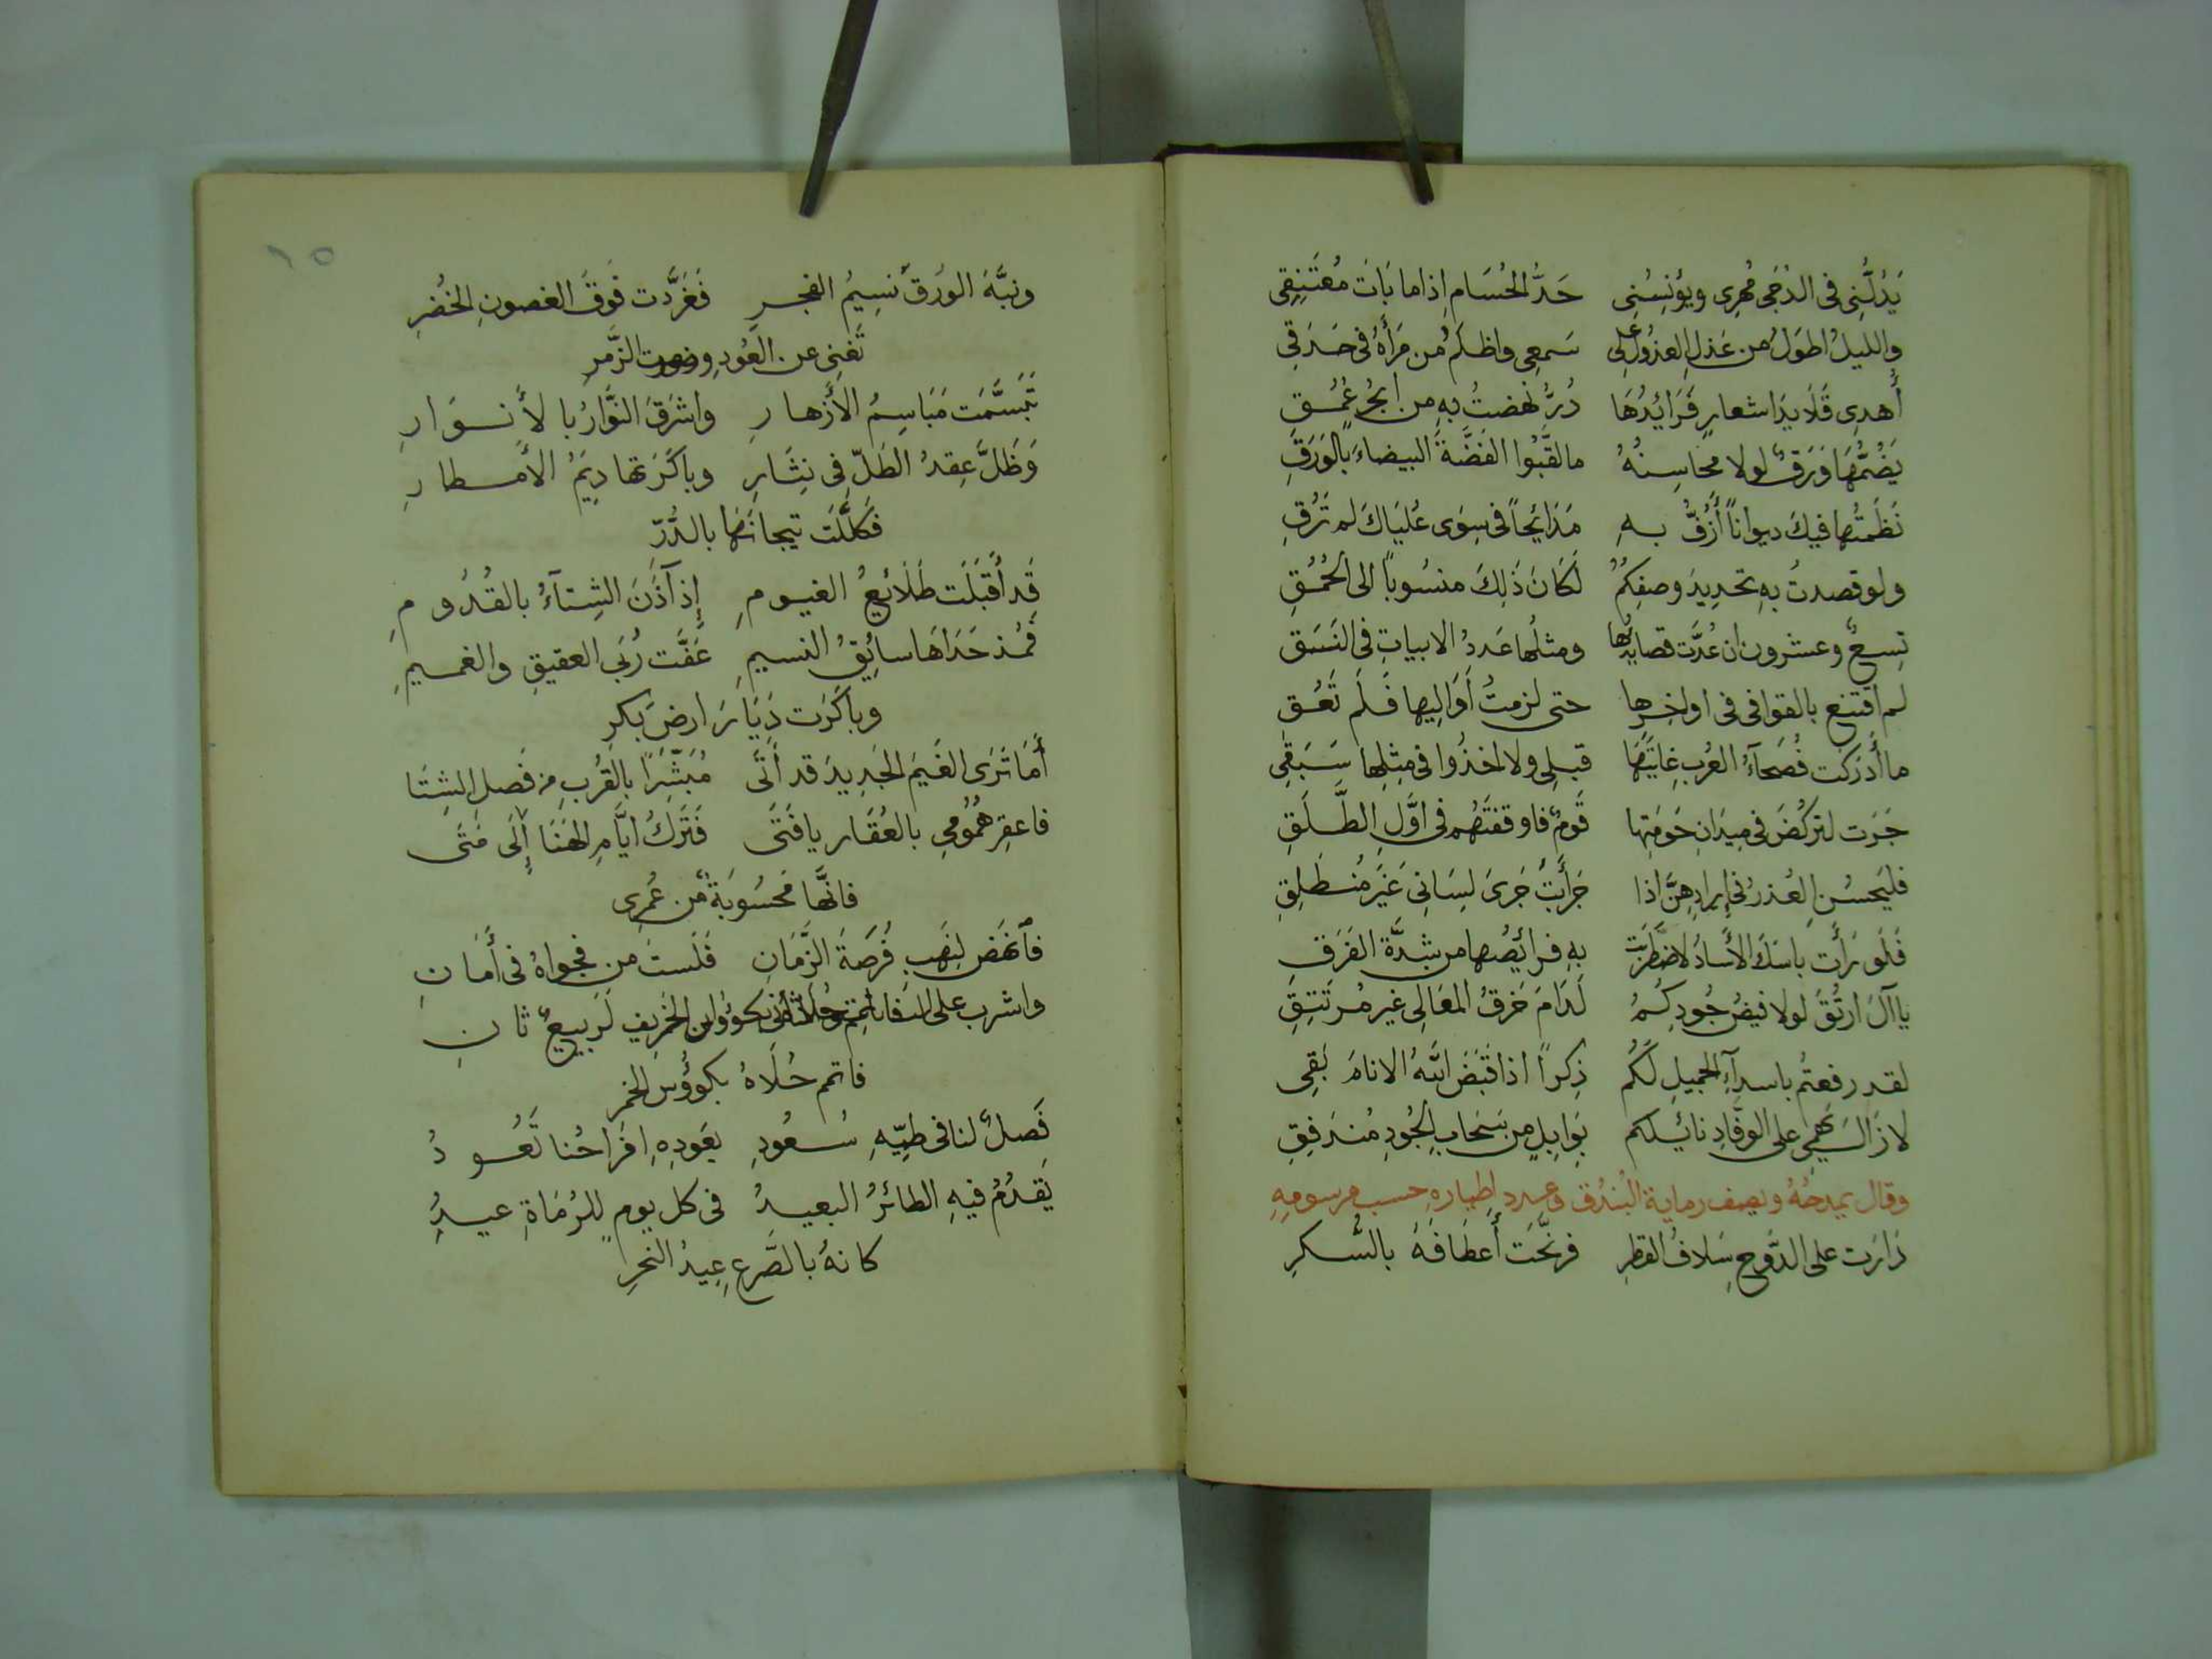 يَدُلُّنِى فى الدُجَى مُهرِى ويؤنِسُنِى حَدُّ الحُسَامِ اِذا ما بَاتَ مُعتَنِقِى
والليلُ اطوَلُ من عَذلِ العذولِ على سَمعِى واظلَمُ من مَرأَهُ فى حَدَقِى
أُهدِى قَلَايدَ اشعارٍ فَرَائِدُهَا دُرٌّ نهضتُ بهِ من ابحُرٍ عُمُق
يَضُمُّهَا وَرَقٌ لولا محاسِنُهُ ما لقَّبُوا الفضَّةَ البيضاءَ بالوَرَقِ
نَظَمتُها فيكَ ديواناً أَزُفُّ بهِ مَدَايَحاً فى سِوَى عُليَاكَ لم تَرُقِ
ولو قصدتُ بهِ تحديدَ وصفِكُمُ لَكَانَ ذَلِكَ منسُوباً الى الحُمُقِ
تِسعٌ وعشرون ان عُدَّت قصايدُها ومثلُها عَددُ الابياتِ فى النَسَق
لم اقتنع بالقوافى فى اواخِرِها حتى لزمتُ أَوَالِيها فَلَم تَعُق
ما أدرَكت فُصَحآءُ العُربِ غايَتَهَا قبلِى ولا اخذُوا فى مِثلِها سَبَقِى
جَرَت لتركُضَ فى ميدَانِ حَومَتِها قَومٌ فاوقفتَهُم فى اوَّلِ الطَّلَقِ
فليَحسُنِ العُذرُ فى إيرادِهِنَّ اذا جَرأَيتُ جَرىَ لِسَانِى غَيرَ مُنطَلِقِ
فَلَو رَأَت بِاسَكَ الأُسادُ لاضطَرَبَت بهِ فرائِصُها من شِدَّة الفَرَقِ
يا آلَ ارتُقَ لولا فيضُ جُودِكِمُ لَدَامَ خَرقُ المعَالِى غير مُرتَتِقِ
لقد رفعتُم باسدآءِ الجميلِ لَكُم ذِكراً اذا قَبَضَ اللهُ الانامَ بَقِى
لا زَالَ يَهمِى على الوفَّادِ نائِلكم بَوَابِلٍ من سَحَابِ الجُودِ مُندَفِقِ
وقال يمدحُهُ ويصف رماية البُندُق وعدد اطياره حسب مرسومهِ
دَارَت على الدَّوحِ سِلافُ القطرِ فرنَّحَت أَعطَافَهُ بالسُّكرِ
٦٥
ونبَّهَ الوُرقَ نَسِيمُ الفجرِ فَغَرَّدَت فَوقَ الغصونِ الخُضرِ
تُغنِى عن العُودِ وصوت الزَّمرِ
تَبَسَّمَت مَبَاسِمُ الأَزهارِ واشرَقَ النَّوَّارُ بالأنوَارِ
وَظَلَّ عِقدُ الطَلِّ فى نِثَارِ وباكَرَتها دِيَمُ الأمطارِ
فَكَلَّلَت تيجانَهَا بالدُّرِّ
قَد أقبَلَت طَلَائِعُ الغيومِ إذ آذَنَ الشِتَآءُ بالقُدُومِ
فمُذ حَدَاهَا سائِقُ النسيمِ عَفَّت رُبَى العقيقِ والغميمِ
وباكَرَت دِيَارَ ارضَ بَكرِ
أَمَا تَرَى الغَيمَ الجَدِيدَ قد أَتَى مُبَشِّرًا بالقُربِ من فَصلِ الشِتَا
فاعقِر هُمُومِى بالعُقَار يا فَتَى فَتَركُ ايَّامِ الهَنَا إِلَى مَتَى
فانَّها مَحسُوبَةٌ من عُمرِى
فانهَض لِنَهَبِ فُرصَةَ الزَّمَانِ فَلَستَ من فجواهُ فى أَمَانِ
واشرب على ان الخَرِيف لَرَبيعٌ ثانِ
فاتمم حُلَاهُ بكوؤس الخمر
فَصلٌ لنا فى طيِّهِ سُعُودِ بعَودِهِ افراحُنا تَعُودُ
يَقدُمُ فيهِ الطائرُ البعيدُ فى كل يومٍ للرُمَاةِ عيدُ
كانهُ بالصَّرعِ عِيدُ النحرِ